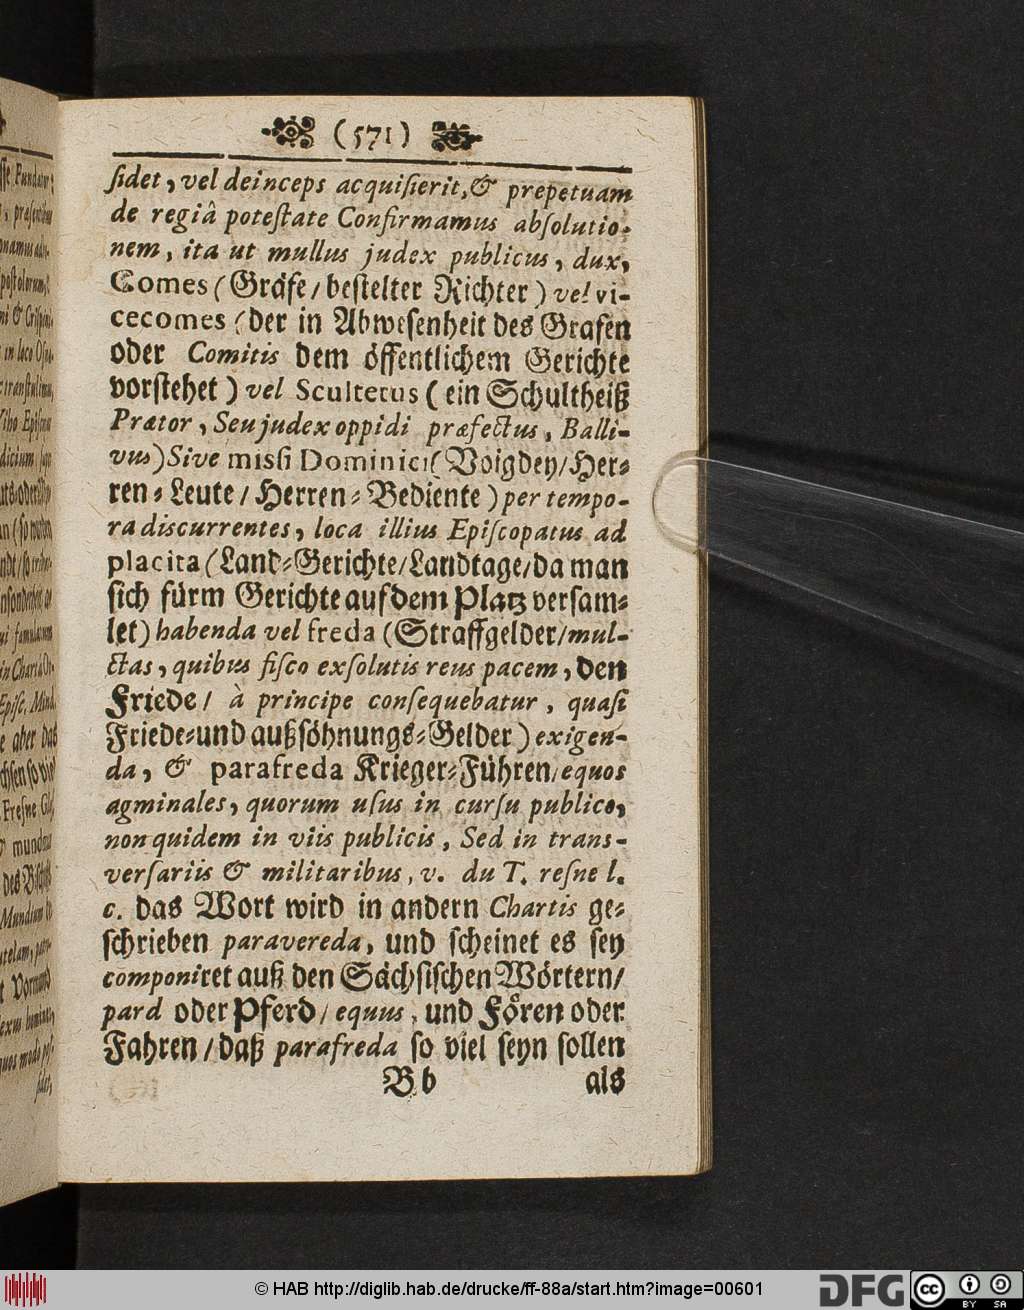 (571)
ſidet, vel deinceps acquiſierit, & prepetuam
de regiâ poteſtate Confirmamus abſolutio-
nem, ita ut mullus judex publicus, dux,
Comes (Gräfe/ beſtelter Richter) vel vi-
cecomes (der in Abweſenheit des Grafen
oder Comitis dem öffentlichem Gerichte
vorſtehet) vel Scultetus (ein Schultheiß
Prætor, Seu judex oppidi præfectus, Balli-
vus) Sive miſſi Dominici (Voigdey/ Her-
ren-Leute/ Herren-Bediente) per tempo-
ra discurrentes, loca illius Epiſcopatus ad
placita (Land-Gerichte/ Landtage/ da man
ſich fürm Gerichte auf dem Platz verſam-
let) habenda vel freda (Straffgelder/ mul-
ctas, quibus fiſco exſolutis reus pacem, den
Friede/ à principe conſequebatur, quaſi
Friede-und außſöhnungs-Gelder) exigen-
da, & parafreda Krieger-Führen/ equos
agminales, quorum uſus in curſu publico,
non quidem in viis publicis, Sed in trans-
verſariis & militaribus, v. du T. reſne l.
c. das Wort wird in andern Chartis ge-
ſchrieben paravereda, und ſcheinet es ſey
componiret auß den Sächſiſchen Wörtern/
pard oder Pferd/ equus, und Fören oder
Fahren/ daß parafreda ſo viel ſeyn ſollen
Bb als
© HAB http://diglib.hab.de/drucke/ff-88a/start.htm?image=00601
DFG
cc
BY SA